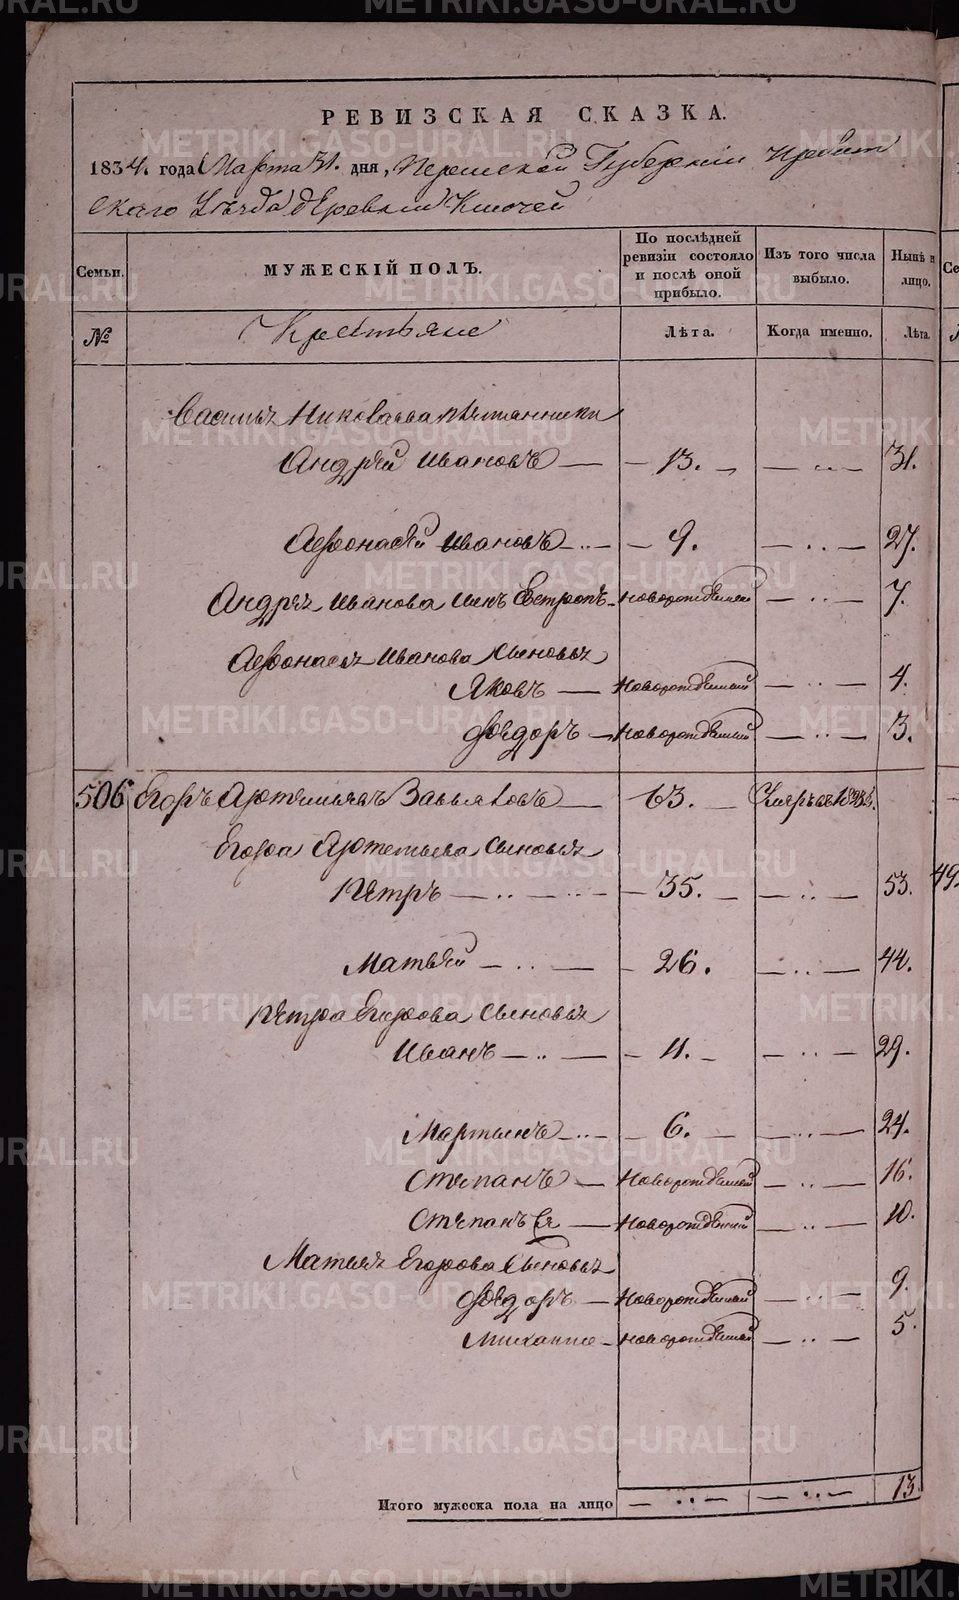 РЕВИЗСКАЯ СКАЗКА.
1834. года Марта 31. дня, Пермской Губернии Ирбит
скаго Уезда деревни Ключей
Семьи. МУЖЕСКІЙ ПОЛЪ. По послѣдней ревизіи состояло и послѣ оной прибыло. Изъ того числа выбыло. Нынѣ н лицо.
№ Крестьяне Лѣта. Когда именно. Лѣта.
Василья Николаева племянники
Андрей Ивановъ — — 13. — — ... — 31.
Афонасей Ивановъ — .. — — 9. — .. — 27.
Андрея Иванова сынъ Евстропъ — новорожденной — .. — 7.
Афонасья Иванова сыновья
Яковъ — Новорожденной — .. — 4.
Федоръ — Новорожденный — .. — 3.
506 Егоръ Артемьевъ Завьяловъ — 63. —
Егора Артемьева сыновья
Петръ — .. — .. — — 35. — — .. — 53.
49
Матвей — .. — — 26. — .. — 44.
Петра Егорова сыновья
Иванъ — .. — — 11. — — .. — 29.
Мартынъ — .. — — 6. — — .. — 24.
Степанъ — Новорожденной — .. — 16.
Степанъ же — Новорожденной — .. — 10.
Матвея Егорова сыновья
Федоръ — Новорожденной — .. — 9.
Михаило — новорожденной — .. — 5.
Итого мужеска пола на лицо — .. — — .. — 13.
METRIKI.GASO-URAL.RU